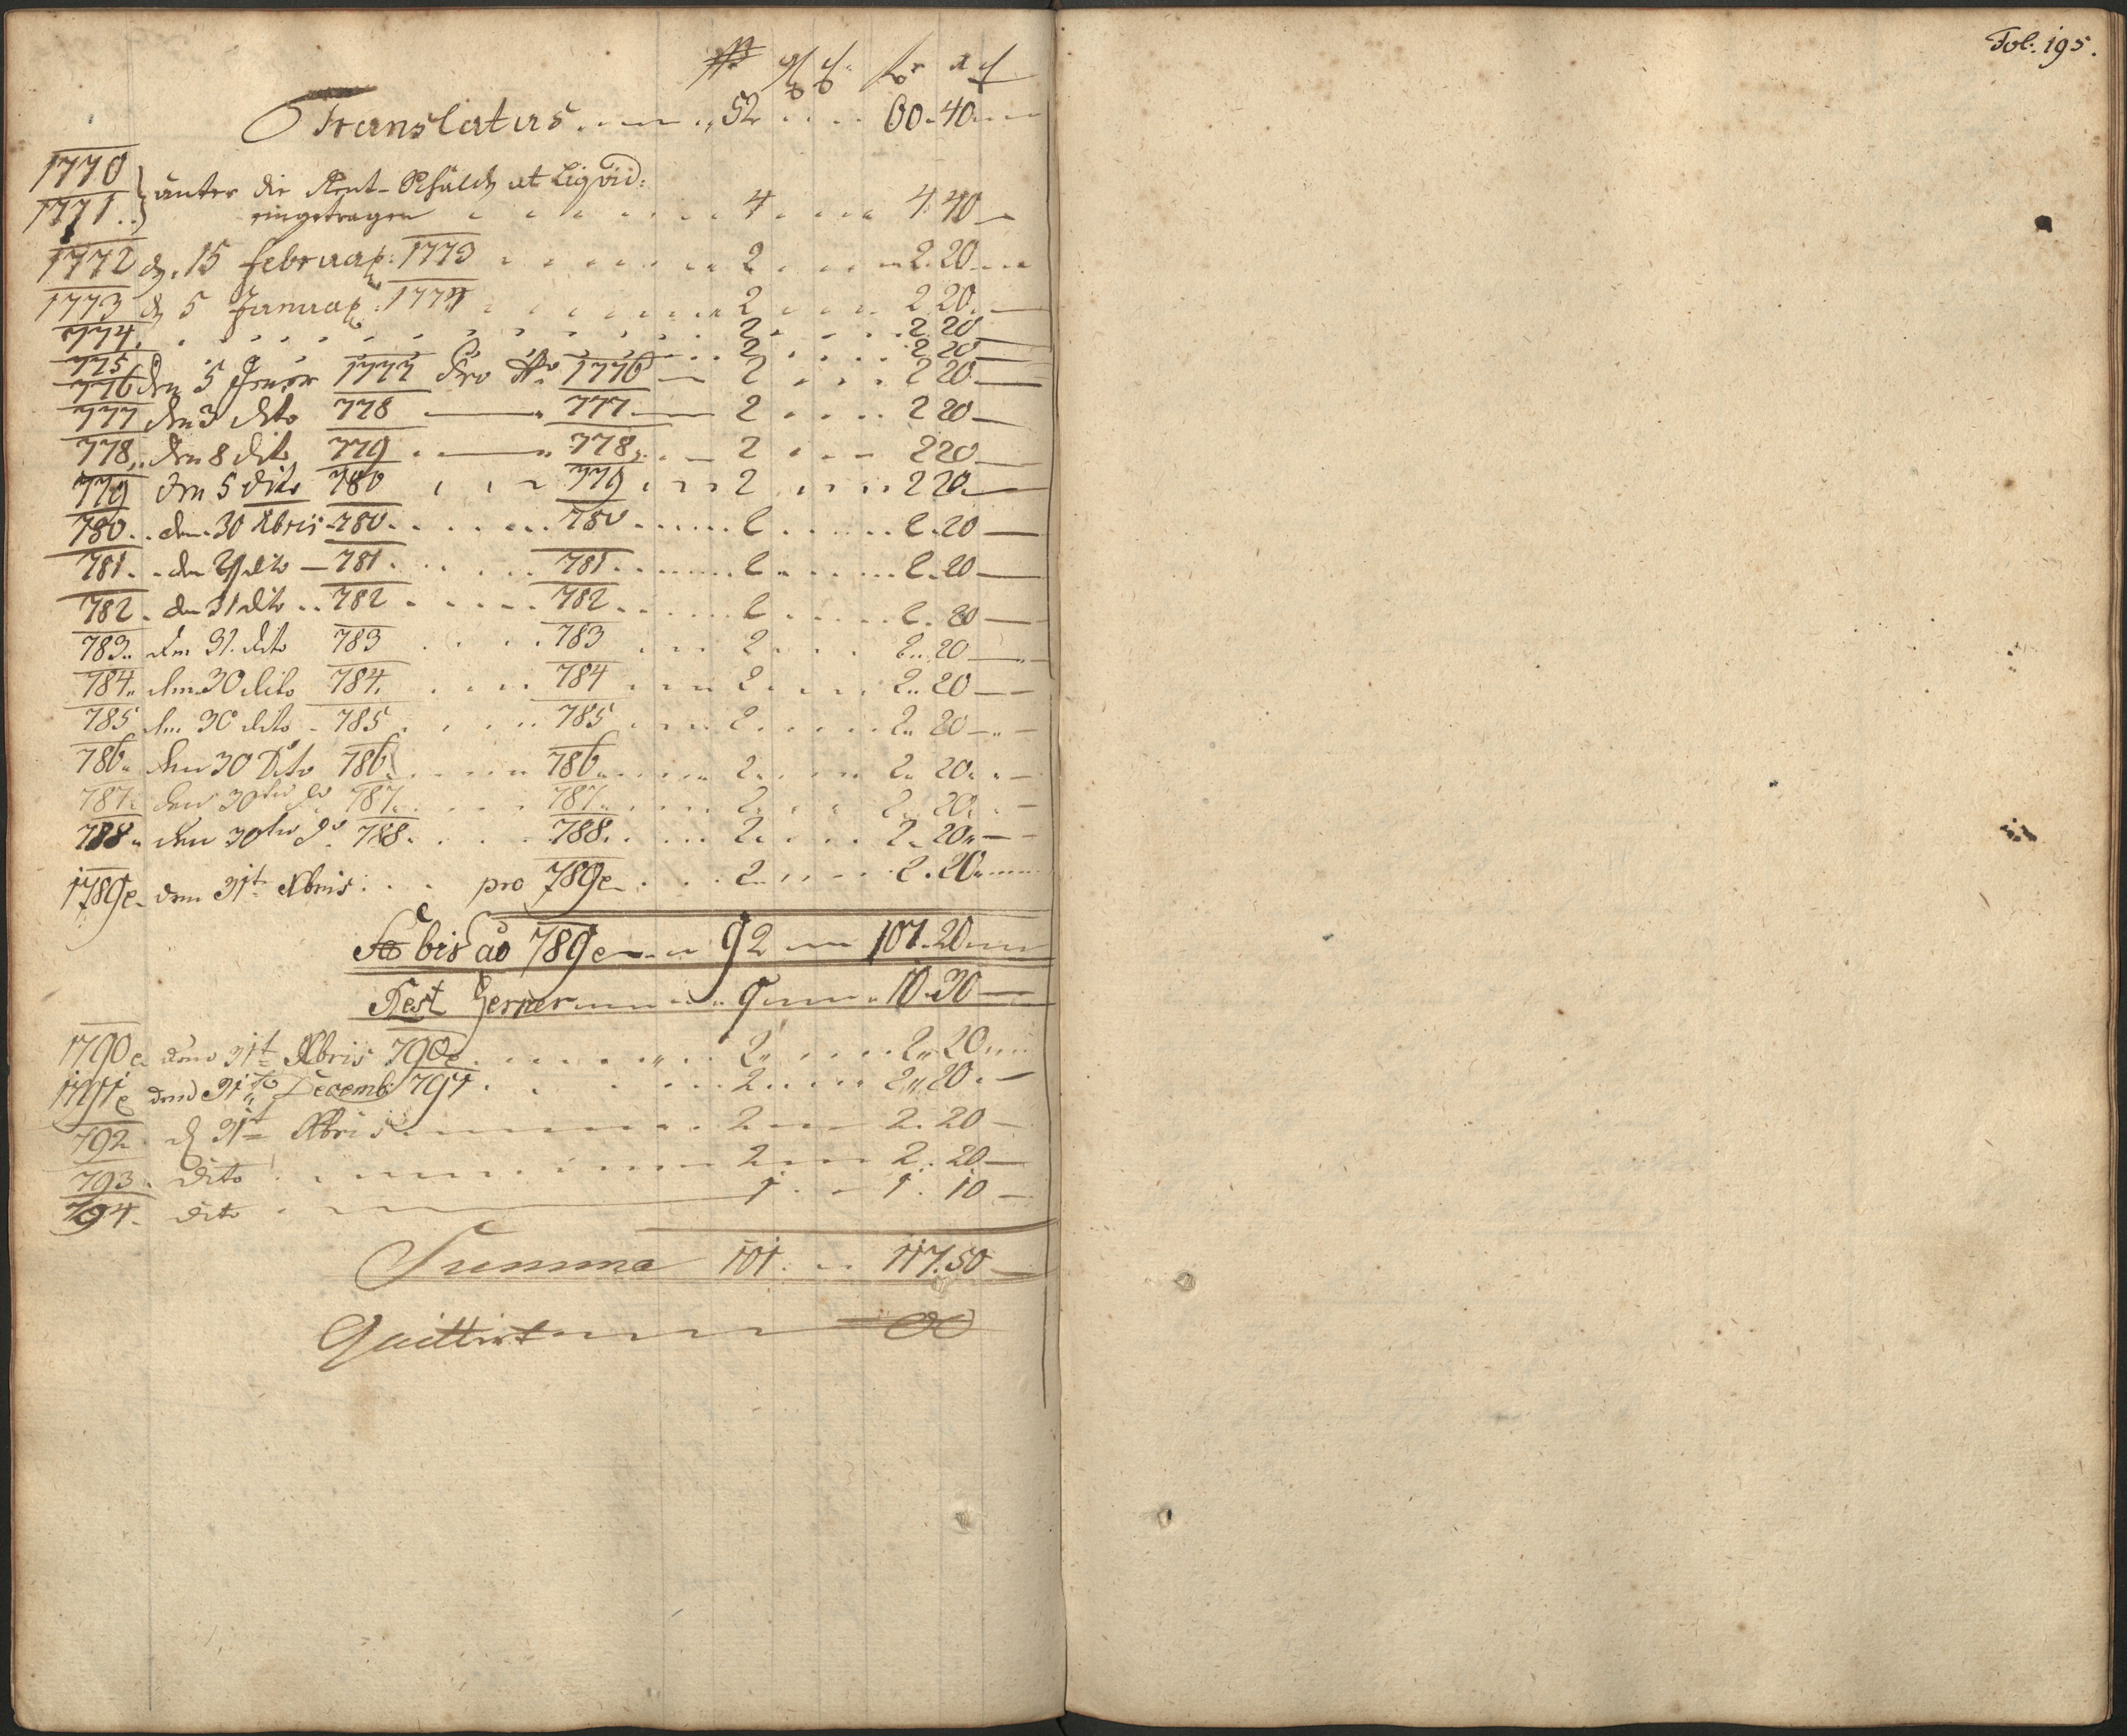 Translatus 52 60 40
1770
1771 } unter die Rent-Schuld at Liquid:
eingetragen 4 4 40
1772 d. 15 februar: 1773 2 2 20
1773 d 5 Januar: 1774 2 2 20
774 2 2 20
775 2 2 20
776 den 5 Jener 1777 pro 1776 2 2 20
777 den 3 dito 778 777 2 2 20
778 den 8 dito 779 778 2 2 20
779 den 5 dito 780 779 2 2 20
780 den 30 Xbris 780 780 2 2 20
781 den 29 dito 781 781 2 2 20
782 den 31 dito 782 782 2 2 20
783 den 31 dito 783 783 2 2 20
784 den 30 dito 784 784 2 2 20
785 den 30 dito 785 785 2 2 20
786 den 30 Dito 786 786 2 2 20
787 den 30ten do 787 787 2 2 20
788 den 30ten do 788 788 2 2 20
1789e den 31t Xbris pro 789e 2 2 20
bis ao 789e 92 107 20
Rest ferner 9 10 30
1790e den 31t Xbris 790e 2 2 20
1791e den 31to Decemb 791 2 2 20
792 d 31t Xbris 2 2 20
793 dito 2 2 20
794 dito 1 1 10
Summa 101 117.50
Quittirt
Fol: 195.